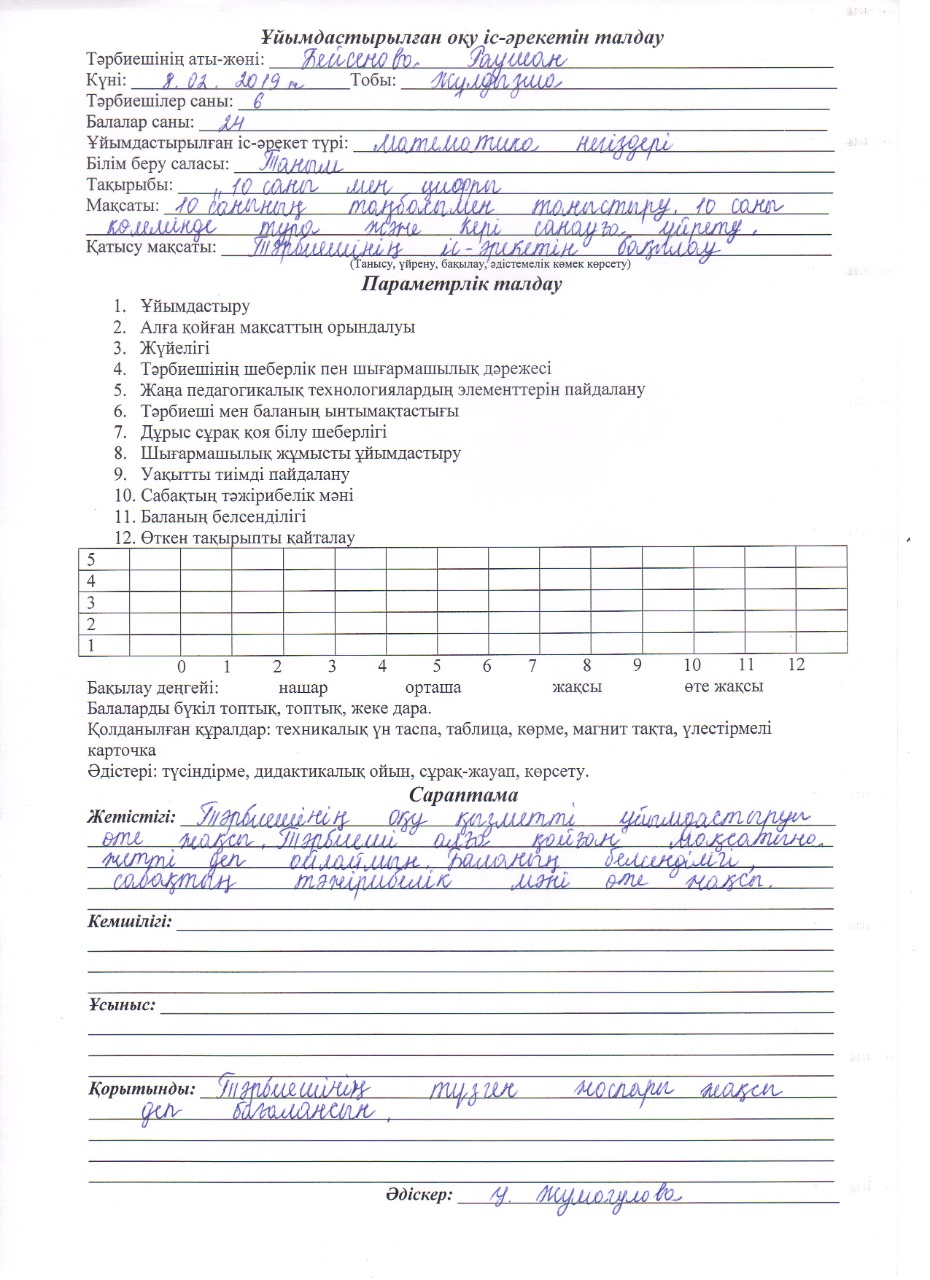 Ұйымдастырылған оқу іс-әрекетін талдау
Тәрбиешінің аты-жөні: Бейсенова Раушан
Күні: 8. 02. 2019 ж Тобы: Жұлдызша
Тәрбиешілер саны: 6
Балалар саны: 24
Ұйымдастырылған іс-әрекет түрі: Математика негіздері
Білім беру саласы: Таным
Тақырыбы: „10 саны мен цифры
Мақсаты: 10 санының таңбасымен таныстыру, 10 саны
көлемінде тура және кері санауға үйрету.
Қатысу мақсаты: Тәрбиешінің іс-әрекетін бақылау
(Танысу, үйрену, бақылау, әдістемелік көмек көрсету)
Параметрлік талдау
1. Ұйымдастыру
2. Алға қойған мақсаттың орындалуы
3. Жүйелігі
4. Тәрбиешінің шеберлік пен шығармашылық дәрежесі
5. Жаңа педагогикалық технологиялардың элементтерін пайдалану
6. Тәрбиеші мен баланың ынтымақтастығы
7. Дұрыс сұрақ қоя білу шеберлігі
8. Шығармашылық жұмысты ұйымдастыру
9. Уақытты тиімді пайдалану
10. Сабақтың тәжірибелік мәні
11. Баланың белсенділігі
12. Өткен тақырыпты қайталау
5
4
3
2
1
0 1 2 3 4 5 6 7 8 9 10 11 12
Бақылау деңгейі: нашар орташа жақсы өте жақсы
Балаларды бүкіл топтық, топтық, жеке дара.
Қолданылған құралдар: техникалық үн таспа, таблица, көрме, магнит тақта, үлестірмелі
карточка
Әдістері: түсіндірме, дидактикалық ойын, сұрақ-жауап, көрсету.
Сараптама
Жетістігі: Тәрбиешінің оқу қызметті ұйымдастыруы
өте жақсы. Тәрбиеші алға қойған мақсатына
жетті деп ойлаймын. Баланың белсенділігі,
сабақтың тәжірибелік мәні өте жақсы.
Кемшілігі:
Ұсыныс:
Қорытынды: Тәрбиешінің түзген жоспары жақсы
деп бағалансын.
Әдіскер: У. Жумагулова